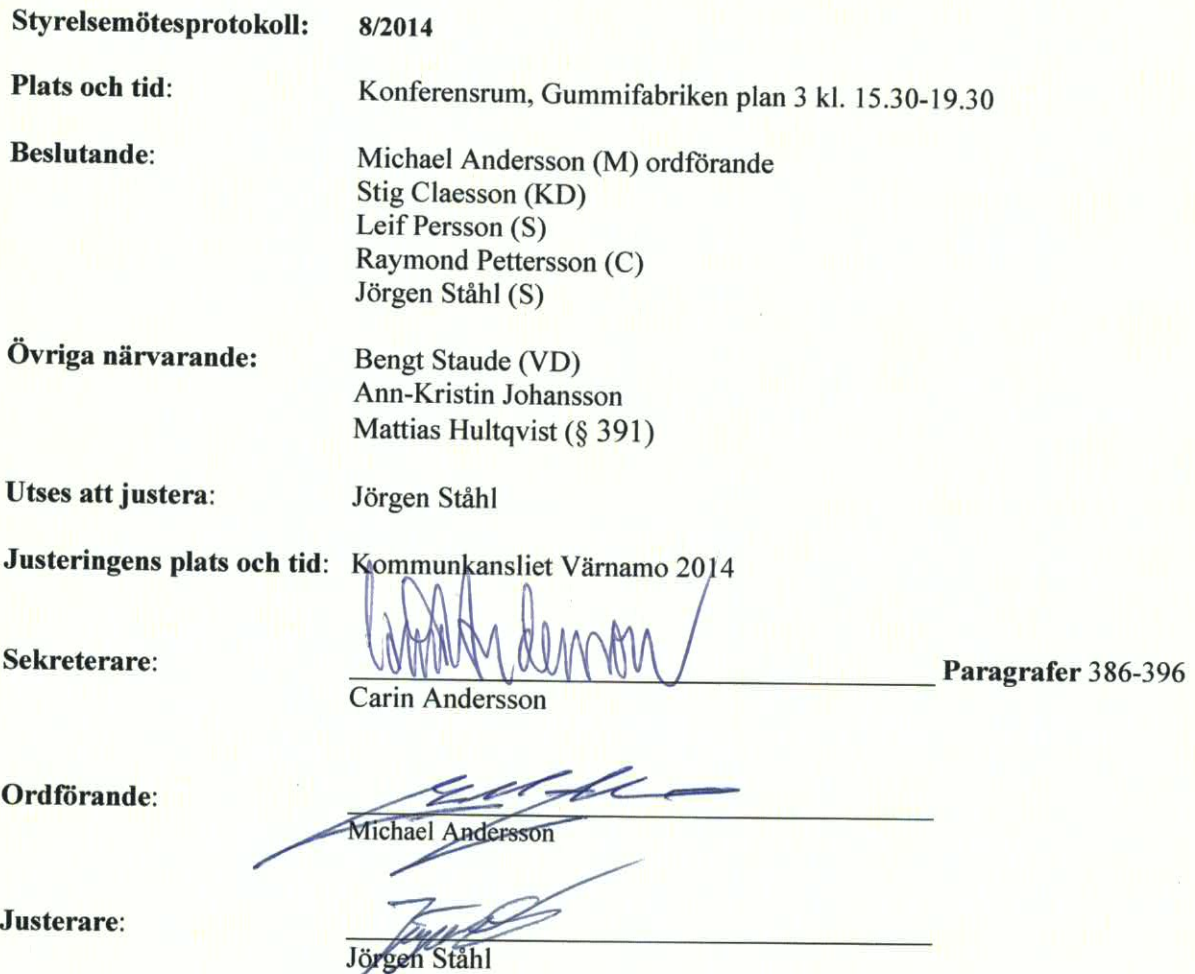 Styrelsemötesprotokoll: 8/2014
Plats och tid: Konferensrum, Gummifabriken plan 3 kl. 15.30-19.30
Beslutande: Michael Andersson (M) ordförande
Stig Claesson (KD)
Leif Persson (S)
Raymond Pettersson (C)
Jörgen Ståhl (S)
Övriga närvarande: Bengt Staude (VD)
Ann-Kristin Johansson
Mattias Hultqvist (§ 391)
Utses att justera: Jörgen Ståhl
Justeringens plats och tid: Kommunkansliet Värnamo 2014
Sekreterare: Paragrafer 386-396
Carin Andersson
Ordförande:
Michael Andersson
Justerare:
Jörgen Ståhl